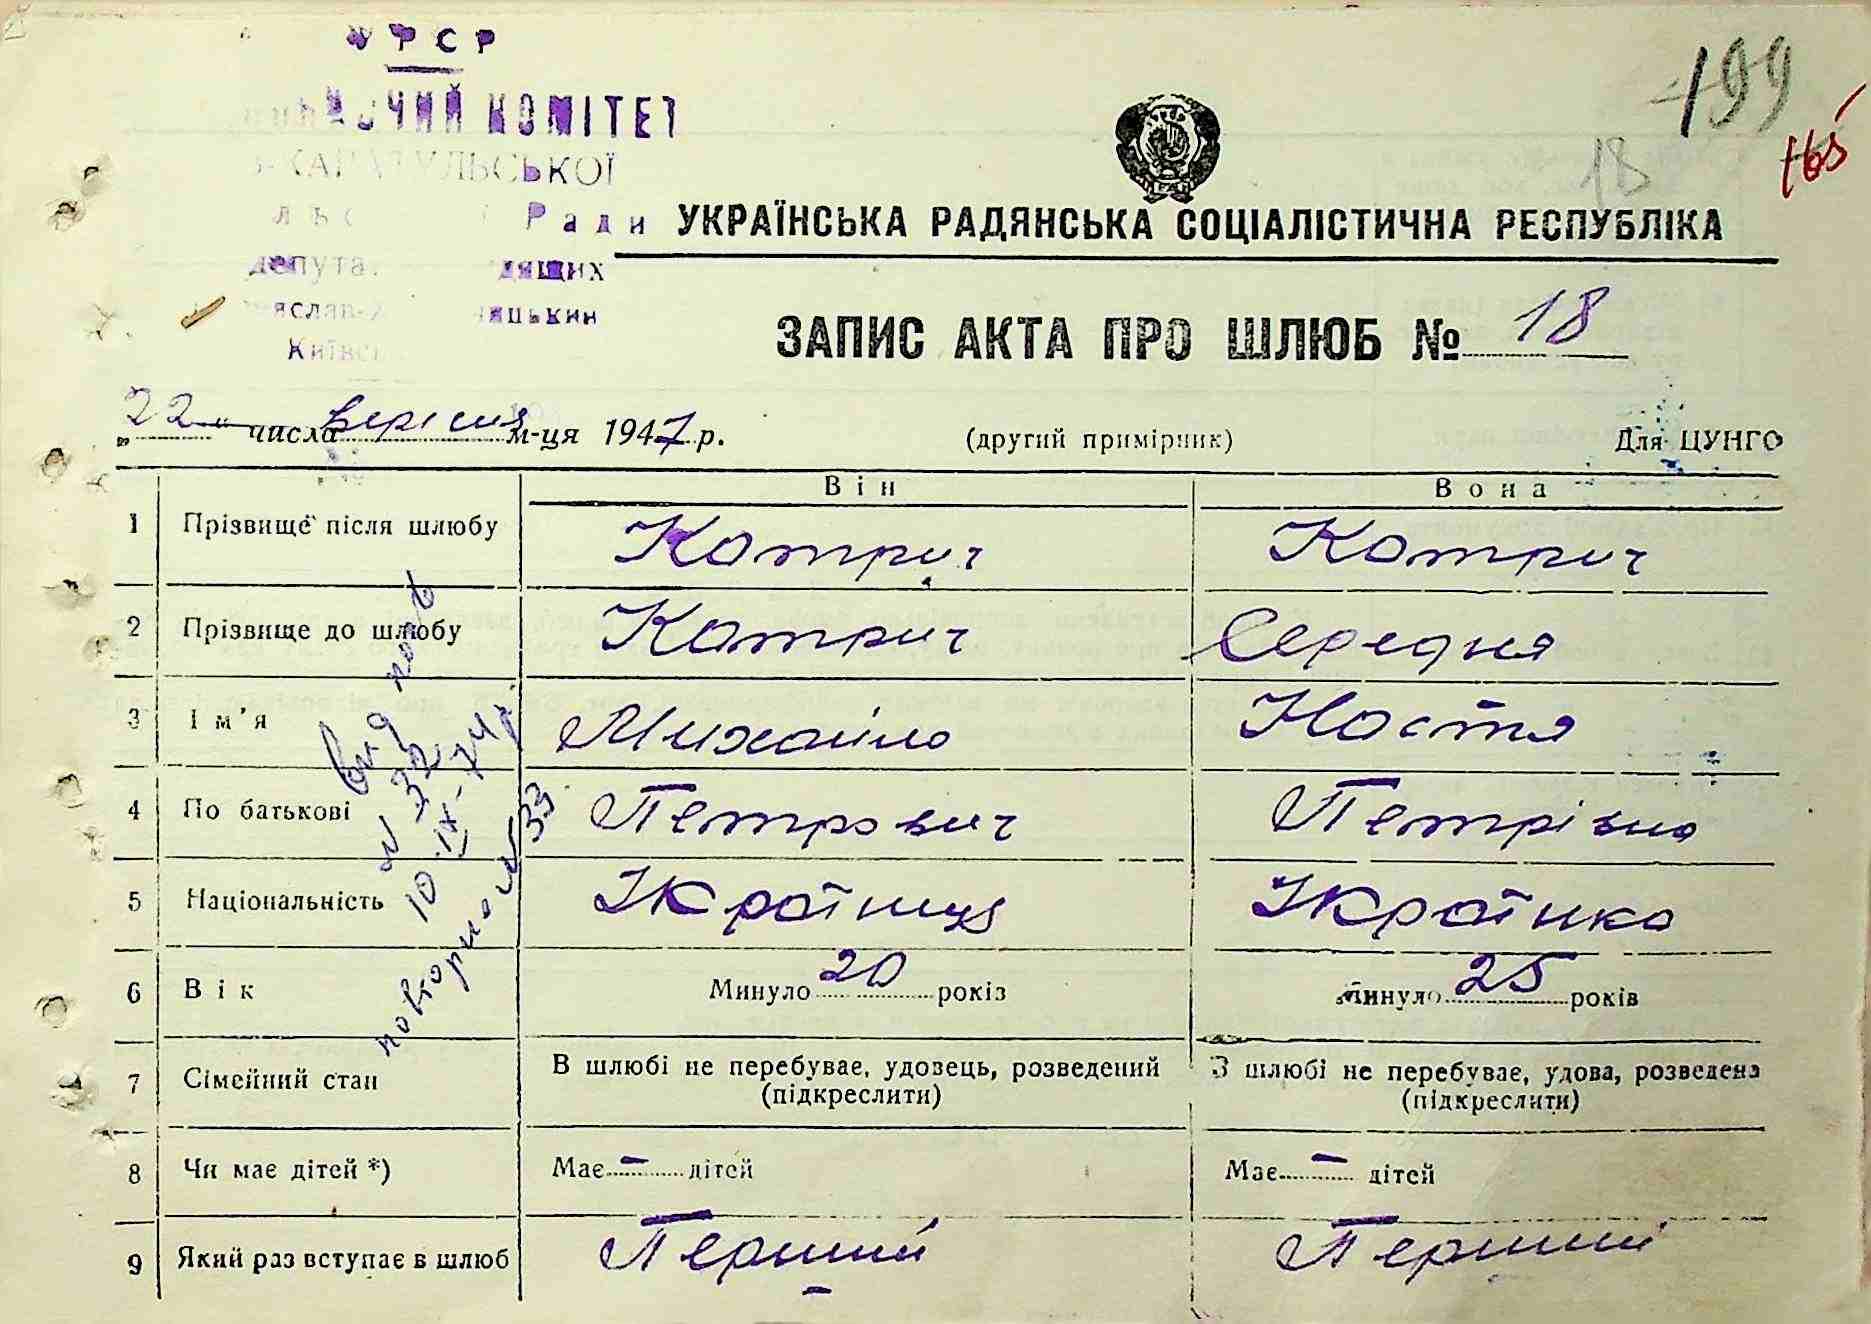 УРСР
КОМІТЕТ
Ради
УКРАЇНСЬКА РАДЯНСЬКА СОЦІАЛІСТИЧНА РЕСПУБЛІКА
199
18
165
ЗАПИС АКТА ПРО ШЛЮБ № 18
„22" числа вересня м-ця 1947 р. (другий примірник) Для ЦУНГО
Він Вона
1 Прізвище після шлюбу Котрич Котрич
2 Прізвище до шлюбу Котрич Середня
3 Ім'я Михайло Настя
4 По батькові Петрович Петрівна
5 Національність Українця Українка
6 Вік Минуло 20 років Минуло 25 років
7 Сімейний стан В шлюбі не перебуває, удовець, розведений (підкреслити) В шлюбі не перебуває, удова, розведена (підкреслити)
8 Чи має дітей *) Має – дітей Має – дітей
9 Який раз вступає в шлюб Перший Перший
вид
№ 32
10.IX-74р
повторно № 33